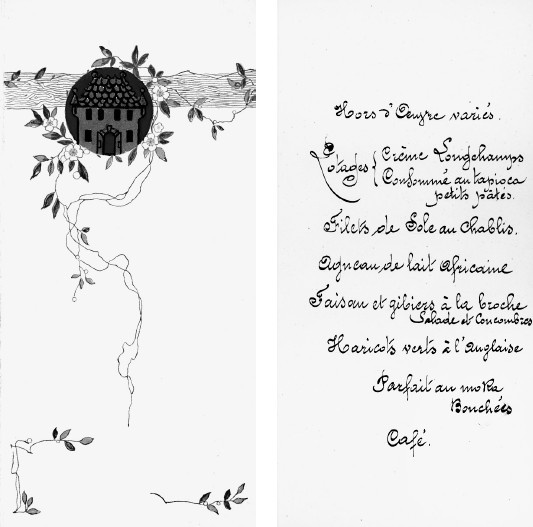 Hors d'Oeuvre variés.
Potages { Crème Longchamps
Consommé au tapioca
petits pâtés.
Filets de Sole au Chablis.
Agneau de lait Africaine
Faisan et gibiers à la broche
Salade et Concombres
Haricots verts à l'Anglaise
Parfait au moka
Bouchées
Café.